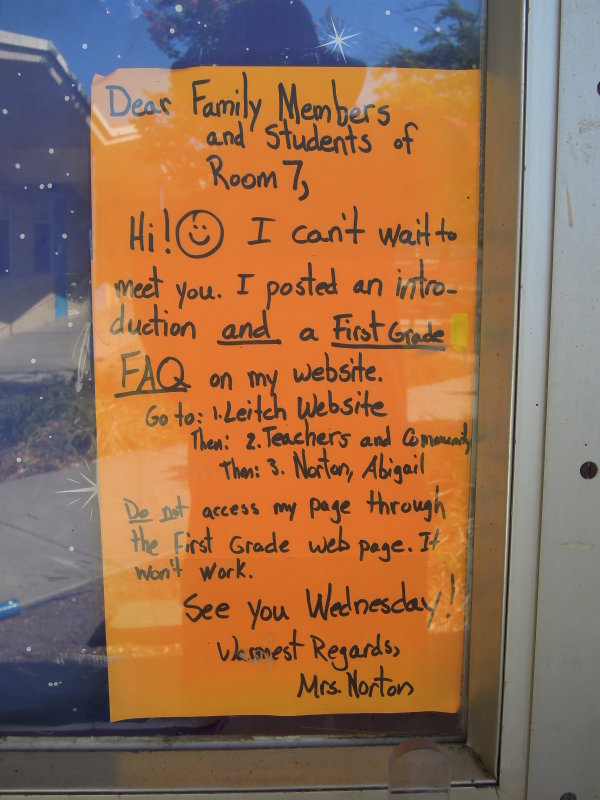 Dear Family Members
and Students of
Room 7,
Hi! I can't wait to
meet you. I posted an intro-
duction and a First Grade
FAQ on my website.
Go to: 1. Leitch Website
Then: 2. Teachers and Community
Then: 3. Norton, Abigail
Do not access my page through
the First Grade web page. It
won't work.
See you Wednesday!
Warmest Regards,
Mrs. Norton